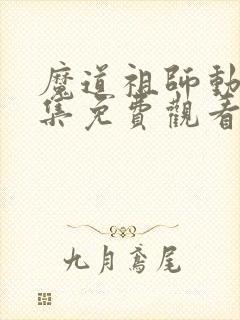 魔道祖師動
集免費觀看
九月鳶尾